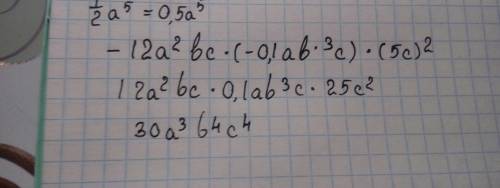 1/2 a⁵ = 0,5a⁵
- 12a² bc · (-0,1ab·³c) · (5c)²
12a² bc · 0,1ab³c · 25c²
30a³ b⁴c⁴